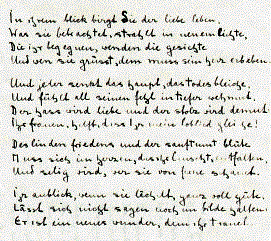 In ihrem blick birgt Sie der liebe leben.
Was sie betrachtet, strahlt in neuem lichte,
Die ihr begegnen, wenden die gesichte
Und wen sie grüsst, dem muss sein herz erbeben.
Und jeder senkt das haupt, das todesbleiche,
Und fühlt all seinen fehl in tiefer wehmut.
Der hass wird liebe und der stolz wird demut
Ihr frauen, helft, dass Ihr mein loblied gleiche!
Des linden friedens und der sanftmut blüte
Muss sich im herzen, das ihr lauscht, entfalten,
Und selig wird, wer sie von ferne schaut.
Ihr anblick, wenn sie lächelt, ganz voll güte,
Lässt sich nicht sagen noch im bilde halten:
Er ist ein neues wunder, dem ihr traut